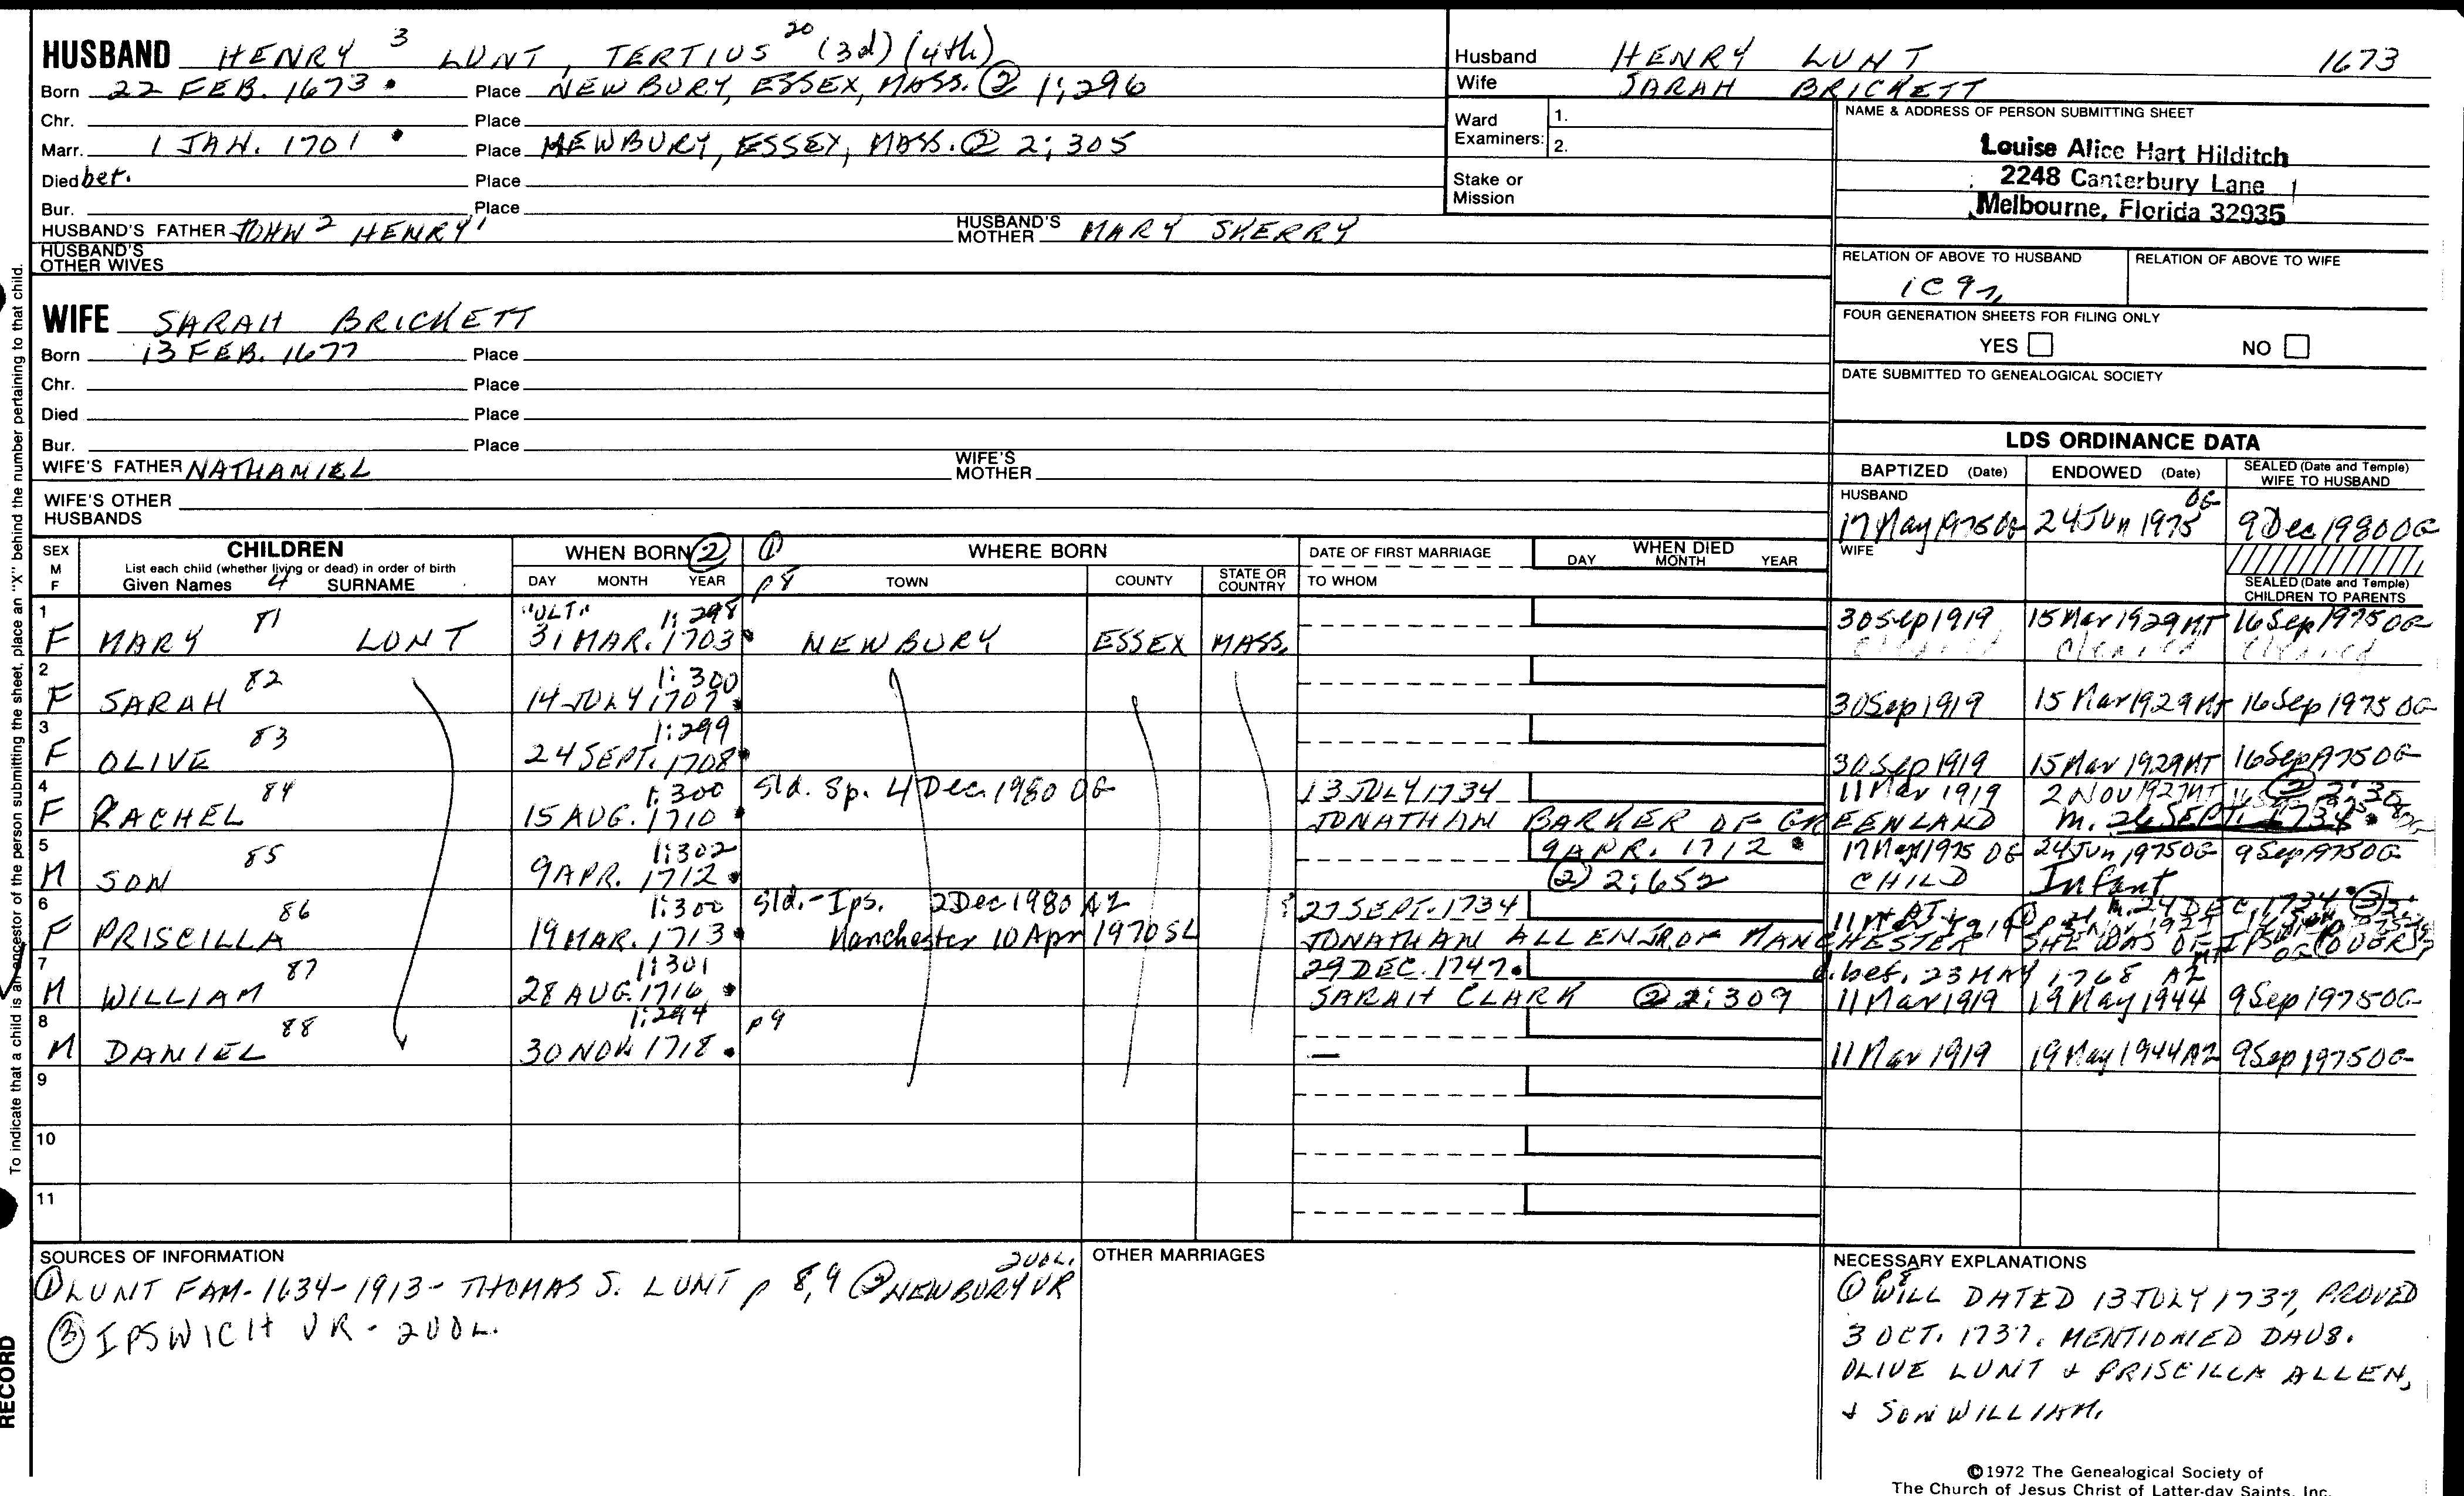 HUSBAND HENRY 3 LUNT, TERTIUS 20 (3d) (4th)
Born 22 FEB. 1673 Place NEWBURY, ESSEX, MASS. ② 1:296
Chr. Place
Marr. 1 JAN. 1701 Place NEWBURY, ESSEX, MASS. ② 2:305
Died bet. Place
Bur. Place
HUSBAND'S FATHER JOHN 2 HENRY 1 HUSBAND'S MOTHER MARY SKERRY
HUSBAND'S OTHER WIVES
WIFE SARAH BRICKETT
Born 13 FEB. 1677 Place
Chr. Place
Died Place
Bur. Place
WIFE'S FATHER NATHANIEL WIFE'S MOTHER
WIFE'S OTHER HUSBANDS
Husband HENRY LUNT 1673
Wife SARAH BRICKETT
Ward Examiners: 1.
2.
Stake or Mission
NAME & ADDRESS OF PERSON SUBMITTING SHEET
Louise Alice Hart Hilditch
2248 Canterbury Lane
Melbourne, Florida 32935
RELATION OF ABOVE TO HUSBAND RELATION OF ABOVE TO WIFE
FOUR GENERATION SHEETS FOR FILING ONLY
YES NO
DATE SUBMITTED TO GENEALOGICAL SOCIETY
LDS ORDINANCE DATA
BAPTIZED (Date) ENDOWED (Date) SEALED (Date and Temple) WIFE TO HUSBAND
HUSBAND
17 May 1975 OG 24 Jun 1975 OG 9 Dec 1980 OG
WIFE
SEALED (Date and Temple) CHILDREN TO PARENTS
SEX M F
CHILDREN
List each child (whether living or dead) in order of birth
Given Names 4 SURNAME
WHEN BORN ② DAY MONTH YEAR
① p8 WHERE BORN TOWN COUNTY STATE OR COUNTRY
DATE OF FIRST MARRIAGE
TO WHOM
WHEN DIED DAY MONTH YEAR
1 81 "ULT" 1:298 30 Sep 1919 15 Mar 1929 MT 16 Sep 1975 OG
F MARY LUNT 31 MAR. 1703 NEWBURY ESSEX MASS. Cleared Cleared Cleared
2 82 1:300
F SARAH 14 JULY 1707 30 Sep 1919 15 Mar 1929 MT 16 Sep 1975 OG
3 83 1:299
F OLIVE 24 SEPT. 1708 30 Sep 1919 15 Mar 1929 MT 16 Sep 1975 OG
4 84 1:300 Sld. Sp. 4 Dec. 1980 OG 13 JULY 1734 11 Mar 1919 2 NOV 1927 MT
F RACHEL 15 AUG. 1710 JONATHAN BARKER OF GREENLAND m. 26 SEPT. 1734
5 85 1:302 9 APR. 1712 17 May 1975 OG 24 Jun 1975 OG 9 Sep 1975 OG
M SON 9 APR. 1712 ② 2:652 CHILD Infant
6 86 1:300 Sld.-Ips. 2 Dec 1980 AZ 27 SEPT. 1734 m. 24 DEC. 1734
F PRISCILLA 19 MAR. 1713 Manchester 10 Apr 1970 SL JONATHAN ALLEN JR. OF MANCHESTER SHE WAS OF IPS.
7 87 1:301 29 DEC. 1747 d. bef. 23 MAY 1768 AZ
M WILLIAM 28 AUG. 1716 SARAH CLARK ② 2:309 11 Mar 1919 19 May 1944 9 Sep 1975 OG
8 88 1:294 p9
M DANIEL 30 NOV. 1718 — 11 Mar 1919 19 May 1944 AZ 9 Sep 1975 OG
9
10
11
SOURCES OF INFORMATION
① LUNT FAM-1634-1913- THOMAS S. LUNT p 8,9 ② NEWBURY VR 2 VOL.
③ IPSWICH VR - 2 VOL.
OTHER MARRIAGES
NECESSARY EXPLANATIONS
① p8 WILL DATED 13 JULY 1737, PROVED
3 OCT. 1737. MENTIONED DAUS.
OLIVE LUNT & PRISCILLA ALLEN,
& SON WILLIAM.
©1972 The Genealogical Society of
The Church of Jesus Christ of Latter-day Saints, Inc.
To indicate that a child is an ancestor of the person submitting the sheet, place an "X" behind the number pertaining to that child.
RECORD